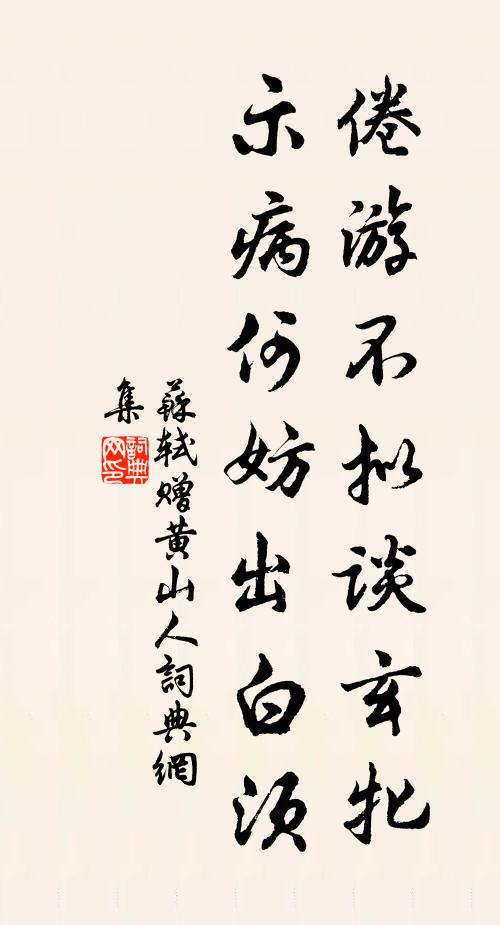 倦游不拟谈玄牝
示病何妨出白须
蘇軾贈黄山人詞典網
集
詞典网印